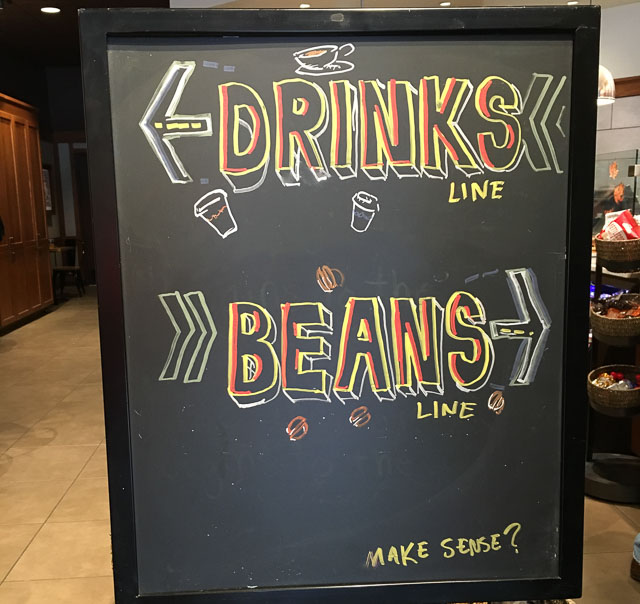 DRINKS
LINE
BEANS
LINE
MAKE SENSE?